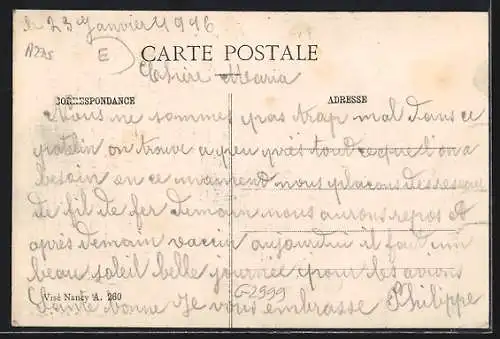 le 23 Janvier 1916
A225
E
CARTE POSTALE
Chère Maria
CORRESPONDANCE
ADRESSE
Nous ne sommes pas trop mal dans ce
patelin on trouve a peu près tout ce que l'on a
besoin en ce moment nous plaçons des reseau
de fil de fer demain nous aurons repos et
après demain vaccin aujourdhui il fait un
beau soleil belle journée pour les avions
Visé Nancy A. 260
G2999
Santé bonne Je vous embrasse Philippe